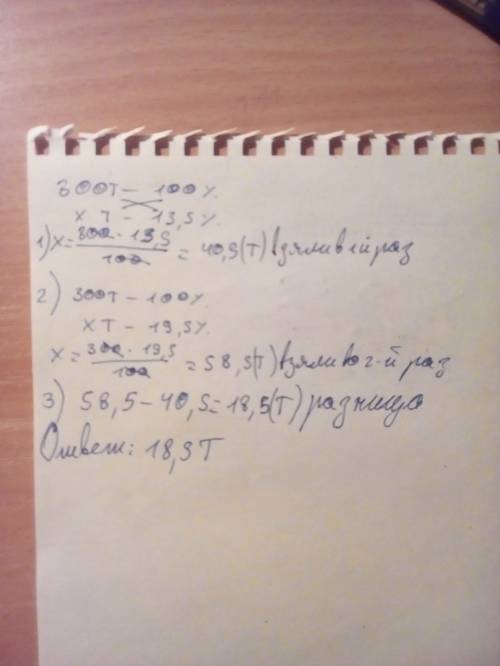 300т – 100%
х т – 13,5%
1) х = 300 · 13,5 / 100 = 40,5(т) взяли в 1й раз
2) 300т – 100%
хт – 19,5%
х = 300 · 19,5 / 100 = 58,5(т) взяли во 2-й раз
3) 58,5 – 40,5 = 18,5(т) разница
Ответ: 18,5 т